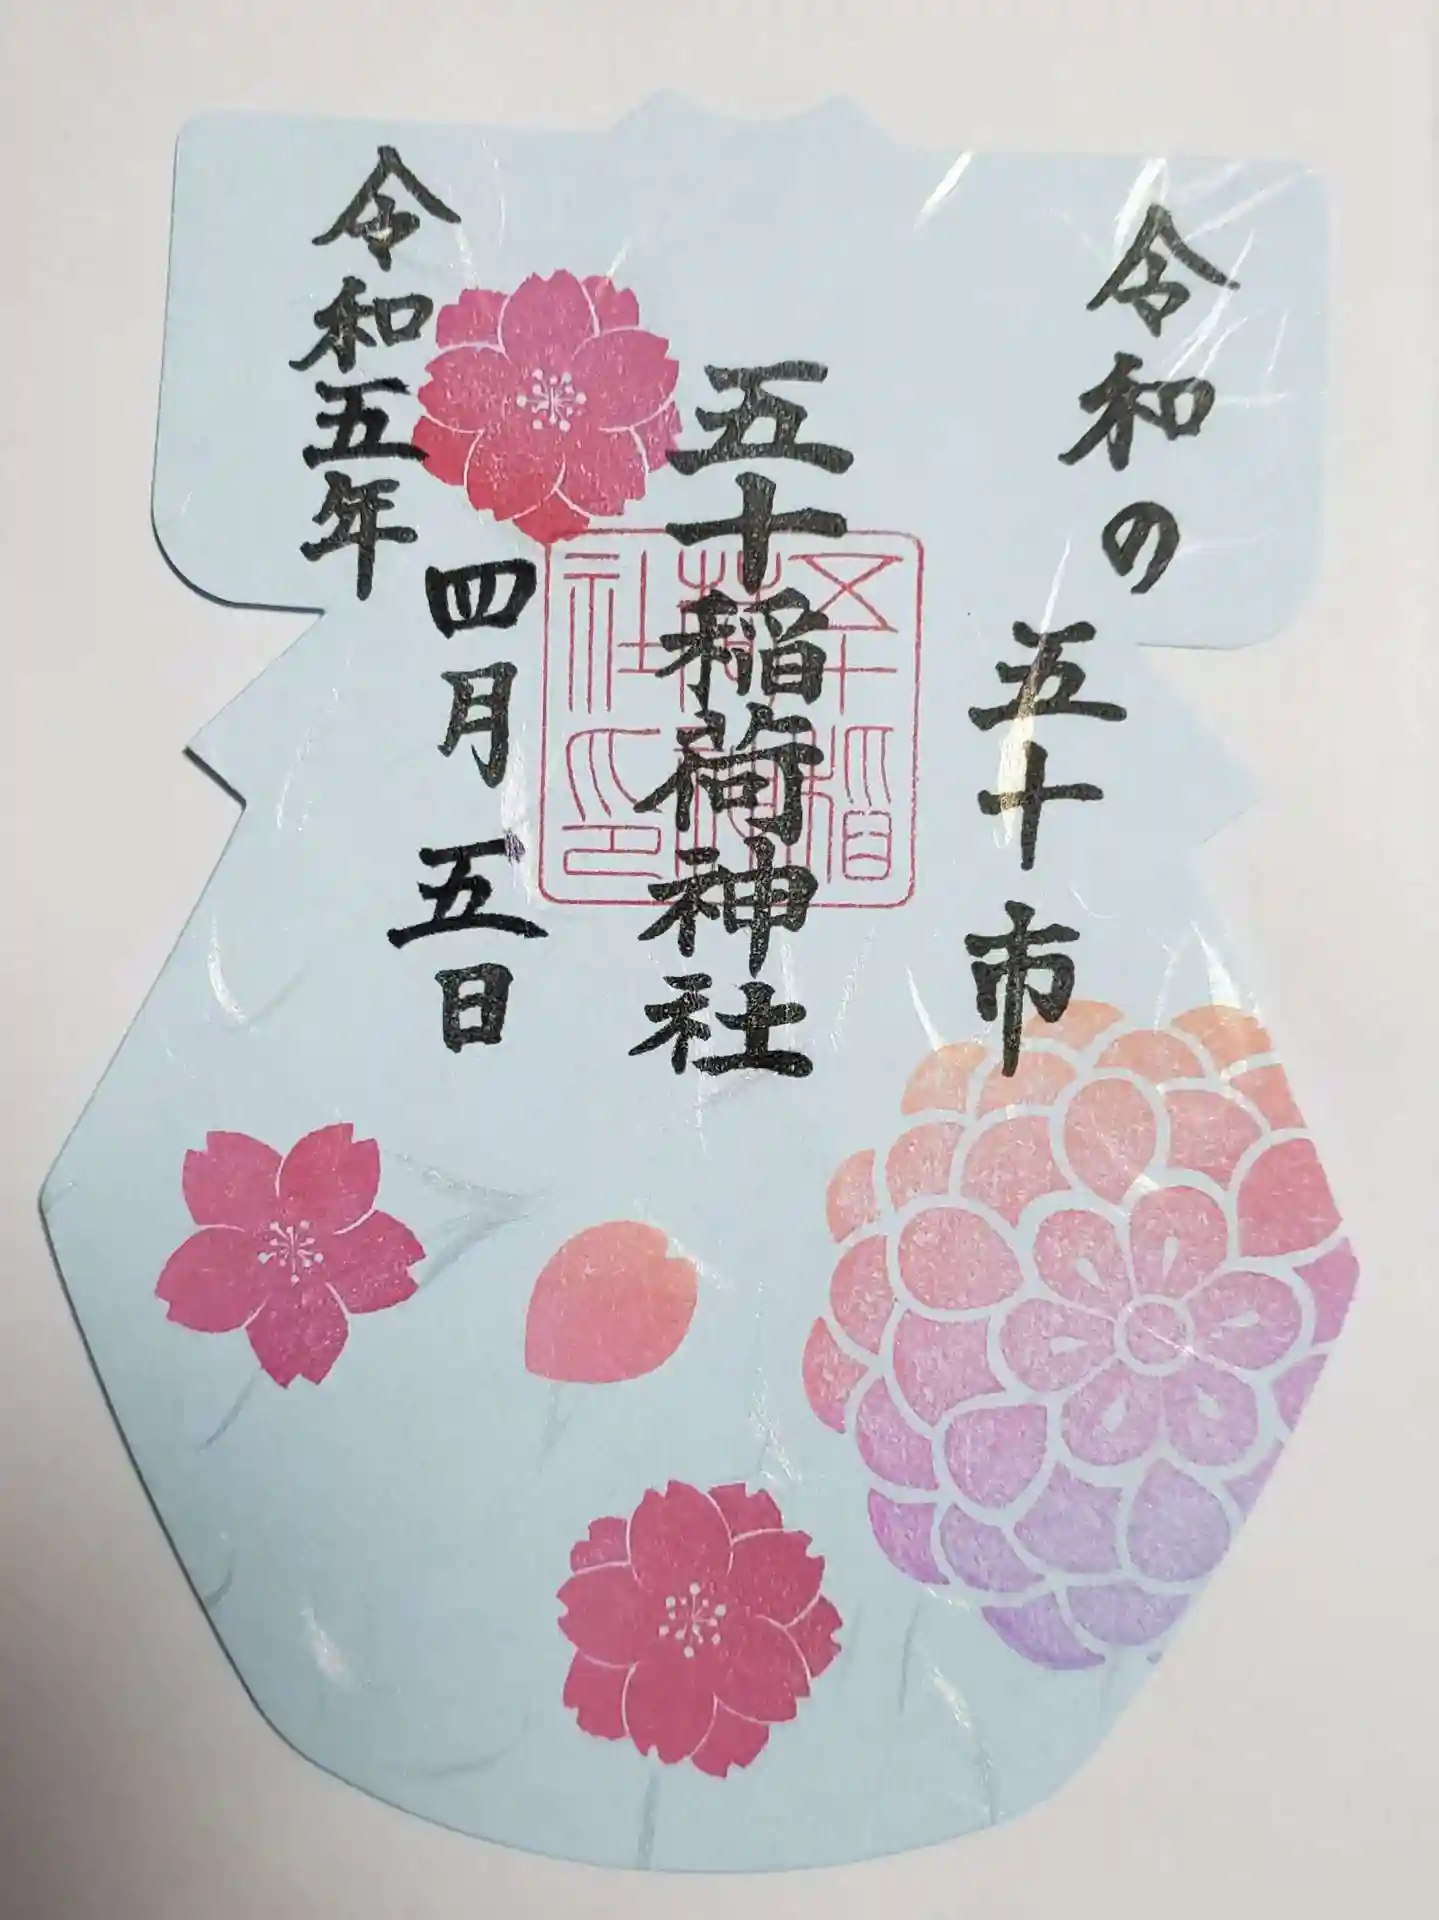 令和の
五十市
五十稲荷神社
五十稲荷神社印
令和五年
四月五日